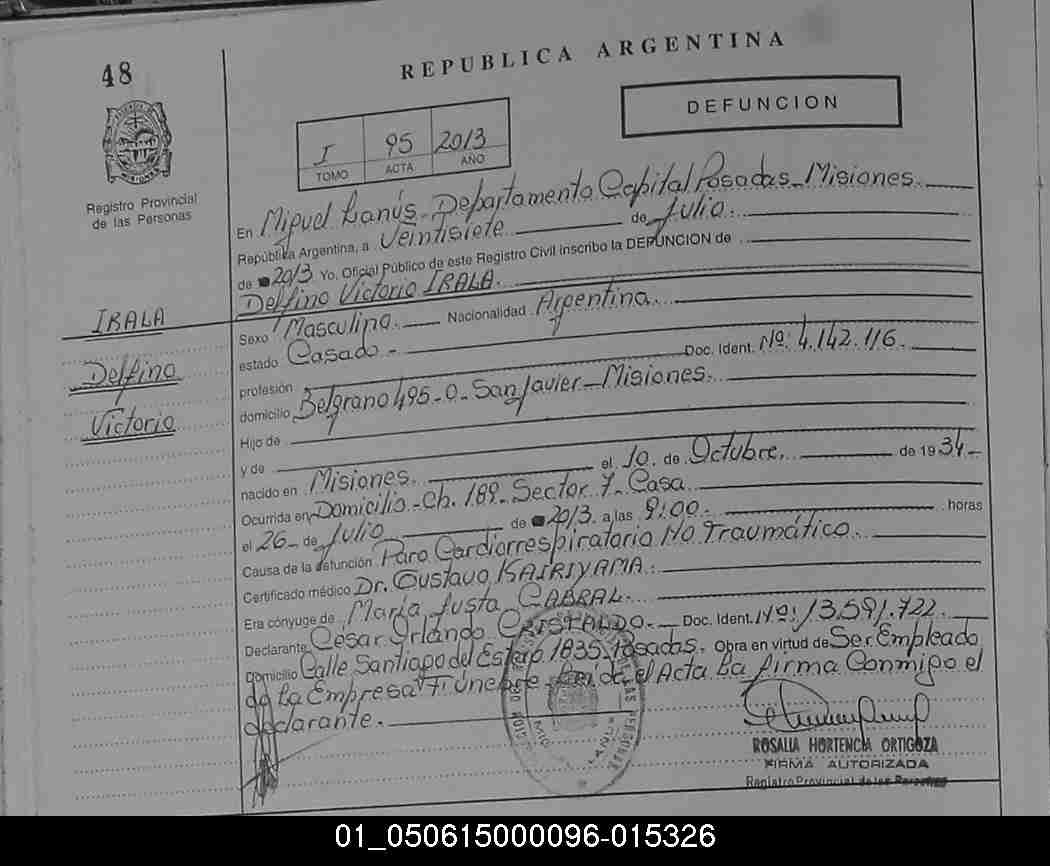 48
REPUBLICA ARGENTINA
DEFUNCION
I 95 2013
TOMO ACTA AÑO
Registro Provincial
de las Personas
En Miguel Lanús - Departamento Capital Posadas - Misiones.
República Argentina, a Veintisiete de Julio.
de 2013 Yo, Oficial Público de este Registro Civil inscribo la DEFUNCION de
Delfino Victorio IRALA.
IRALA
Delfino
Victorio
Sexo Masculino. Nacionalidad Argentina.
estado Casado -
profesión Doc. Ident. Nº: 4.142.116.
domicilio Belgrano 495 - 0 - San Javier - Misiones.
Hijo de
y de
nacido en Misiones. el 10. de Octubre. de 1934 -
Ocurrida en Domicilio - Ch. 189 - Sector 7 - Casa
el 26 - de Julio de 2013. a las 9:00. horas
Causa de la defunción Paro Cardiorrespiratorio No Traumático.
Certificado médico Dr. Gustavo KAIRIYAMA.
Era cónyuge de María Justa CABRAL.
Declarante César Orlando CRISTALDO. Doc. Ident. Nº: 13.591.722.
Domicilio Calle Santiago del Estero 1835. Posadas. Obra en virtud de Ser Empleado
de la Empresa Fúnebre. Leída el Acta la firma Conmigo el
declarante.
ROSALIA HORTENCIA ORTIGOZA
FIRMA AUTORIZADA
Registro Provincial de las Personas
01_050615000096-015326